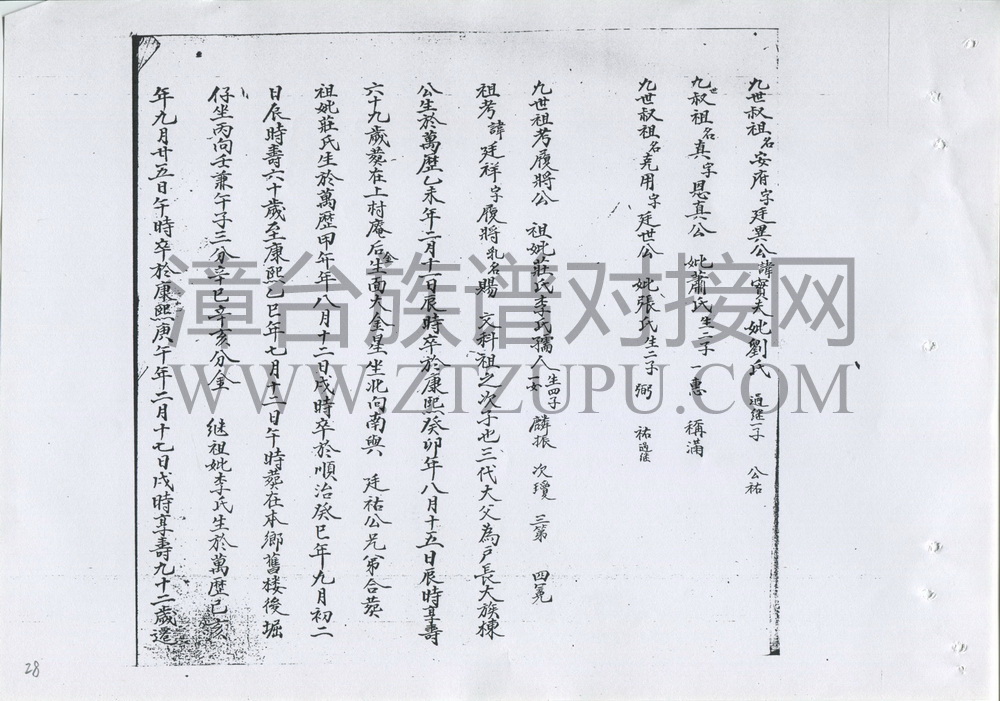 九世叔祖名安府字廷異公諱實夫妣劉氏 過继一子 公祐
九世叔祖名真字恩真公 妣蕭氏生二子 一惠 稱滿
九世叔祖名克用字廷世公 妣張氏生二子 弼 祐過继
九世祖考履將公 祖妣莊氏李氏孺人生四子一女 麟振 次瓊 三第 四冕
祖考諱廷祥字履將乳名賜 文科祖之次子也三代大父為戶長大族棟
公生於萬歷乙未年二月十一日辰時卒於康熙癸卯年八月十五日辰時享壽
六十九歲葵在上村庵后生面大金星坐北向南與 廷祐公兄弟合葵
祖妣莊氏生於萬歷甲午年八月十二日戌時卒於順治癸巳年九月初二
日辰時壽六十歲至康熙乙巳年七月十二日午時葵在本鄉舊楼後堀
仔坐丙向壬兼午子三分辛巳辛亥分金 继祖妣李氏生於萬歷己亥
年九月廿五日午時卒於康熙庚午年二月十七日戌時享壽九十二歲遷
漳台族谱对接网
WWW.ZTZUPU.COM
28